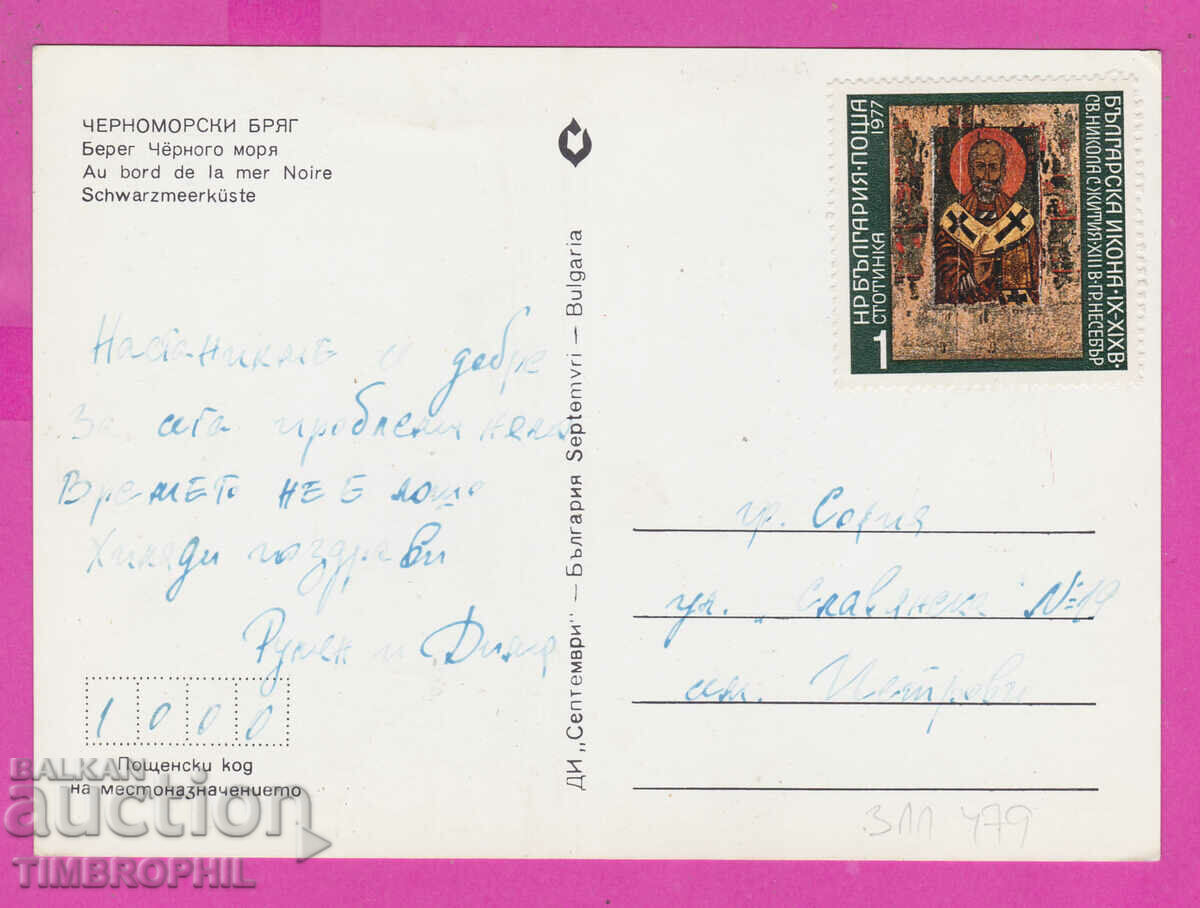 ЧЕРНОМОРСКИ БРЯГ
Берег Чёрного моря
Au bord de la mer Noire
Schwarzmeerküste
Настанихме се добре
За сега проблеми няма
Времето не е лошо
Хиляди поздрави
Румен и Дима
1 0 0 0
Пощенски код
на местоназначението
ДИ „Септември" — България Septemvri — Bulgaria
НР БЪЛГАРИЯ·ПОЩА
1977
1 СТОТИНКА
БЪЛГАРСКА ИКОНА·IX-XIXВ·
СВ.НИКОЛА С ЖИТИЯ·XIIIВ·ГР.НЕСЕБЪР
гр. София
ул. „Славянска" №19
сем. Петрови
311 479
BALKAN
auction
TIMBROPHIL